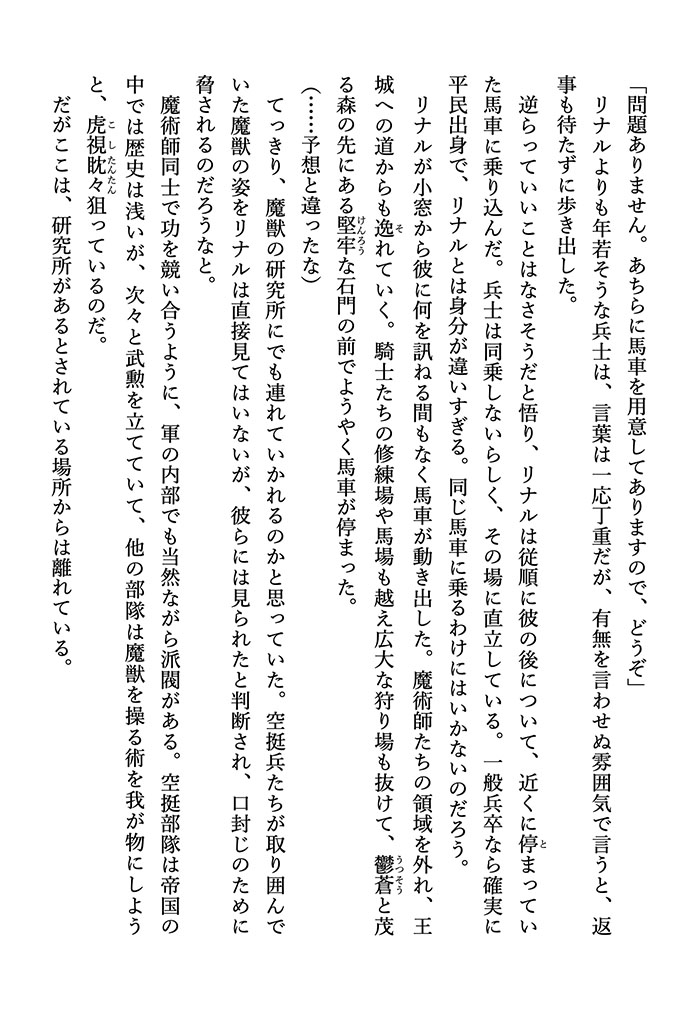 「問題ありません。あちらに馬車を用意してありますので、どうぞ」
　リナルよりも年若そうな兵士は、言葉は一応丁重だが、有無を言わせぬ雰囲気で言うと、返
事も待たずに歩き出した。
　逆らっていいことはなさそうだと悟り、リナルは従順に彼の後について、近くに停まってい
た馬車に乗り込んだ。兵士は同乗しないらしく、その場に直立している。一般兵卒なら確実に
平民出身で、リナルとは身分が違いすぎる。同じ馬車に乗るわけにはいかないのだろう。
　リナルが小窓から彼に何を訊ねる間もなく馬車が動き出した。魔術師たちの領域を外れ、王
城への道からも逸れていく。騎士たちの修練場や馬場も越え広大な狩り場も抜けて、鬱蒼と茂
る森の先にある堅牢な石門の前でようやく馬車が停まった。
（……予想と違ったな）
　てっきり、魔獣の研究所にでも連れていかれるのかと思っていた。空挺兵たちが取り囲んで
いた魔獣の姿をリナルは直接見てはいないが、彼らには見られたと判断され、口封じのために
脅されるのだろうなと。
　魔術師同士で功を競い合うように、軍の内部でも当然ながら派閥がある。空挺部隊は帝国の
中では歴史は浅いが、次々と武勲を立てていて、他の部隊は魔獣を操る術を我が物にしよう
と、虎視眈々狙っているのだ。
　だがここは、研究所があるとされている場所からは離れている。